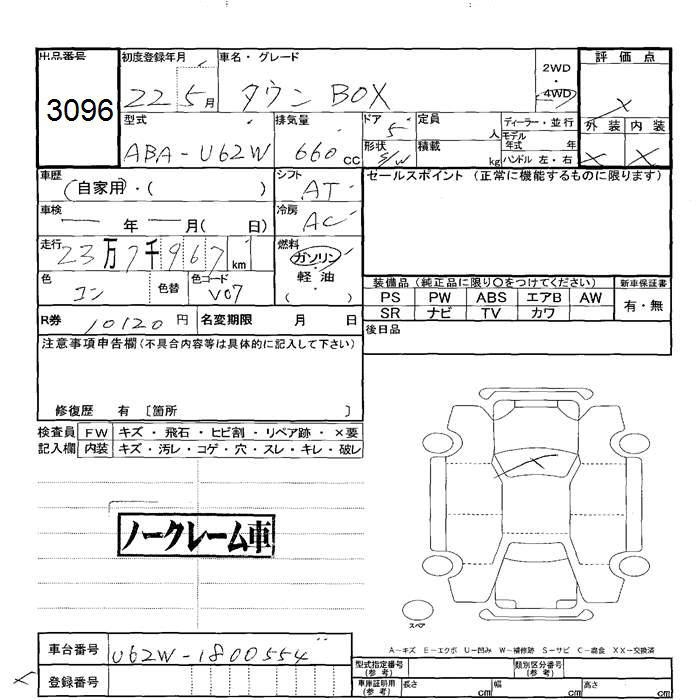 出品番号
3096
初度登録年月
22 5月
車名・グレード
タウン BOX
2WD
4WD
評価点
×
外装 内装
× ×
型式
ABA-U62W
排気量
660cc
ドア 5
形状 S/W
定員 人
積載 kg
ディーラー・並行
モデル年式 年
ハンドル 左・右
車歴
(自家用)・( )
シフト
AT
セールスポイント (正常に機能するものに限ります)
車検
年 月( 日)
冷房
AC
走行
23万7千967km
燃料
ガソリン
軽油
( )
色
コン
色替
色コード
V07
装備品(純正品に限り〇をつけてください)
新車保証書
PS PW ABS エアB AW
SR ナビ TV カワ
有・無
R券 10120円
名変期限 月 日
後日品
注意事項申告欄(不具合内容等は具体的に記入して下さい)
修復歴 有 [箇所 ]
検査員 FW キズ・飛石・ヒビ割・リペア跡・×要
記入欄 内装 キズ・汚レ・コゲ・穴・スレ・キレ・破レ
×
ノークレーム車
スペア
A－キズ E－エクボ U－凹み W－補修跡 S－サビ C－腐食 XX－交換済
車台番号
U62W-1800554
×
登録番号
型式指定番号(参考)
類別区分番号(参考)
車庫証明用(参考) 長さ cm 幅 cm 高さ cm